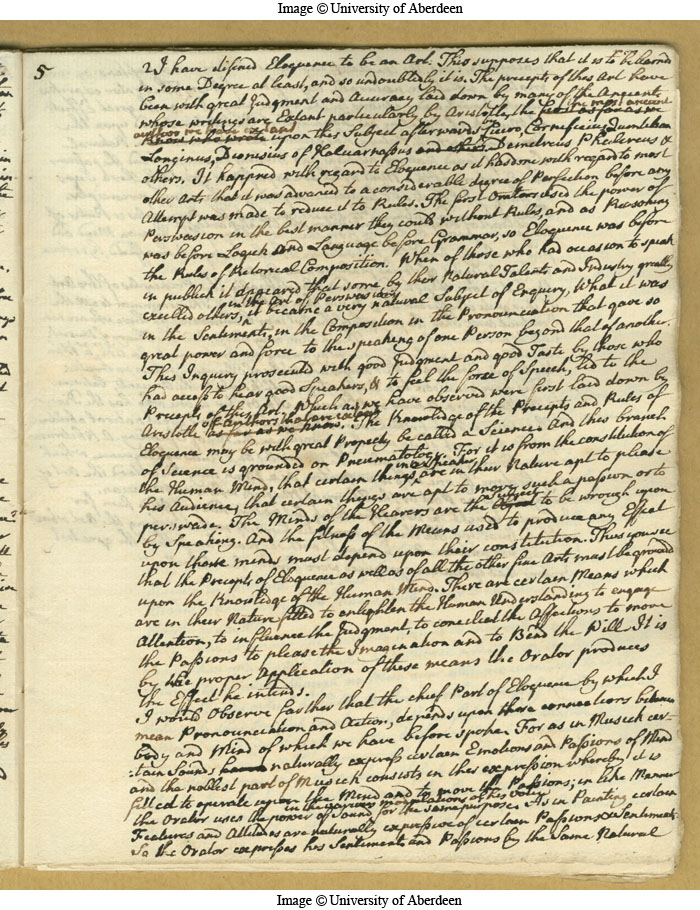 Image © University of Aberdeen
5
2 I have defined Eloquence to be an Art. This supposes that it is to be learnd
in some Degree at least, and so undoubtedly it is. The precepts of this Art have
been with great Judgment and Accuracy laid down by many of the Ancients
whose writings are Extant particularly by Aristotle, the
the most ancient
author we have extant
who wrote upon this Subject afterwards Cicero, Cornificius, Quintilian
Longinus, Dionisius of Halicarnassus and Demetrius Phalereus &
others. It happned with regard to Eloquence as it has done with regard to most
other Arts that it was advanced to a considerable degree of Perfection before any
Attempt was made to reduce it to Rules. The first Orators used the power of
Perswasion in the best manner they could without Rules, and as Reasoning
was before Logick and Language before Grammar, so Eloquence was before
the Rules of Rhetorical Composition. When of those who had occasion to speak
in publick it appeared that some by their Natural Talents and Industry greatly
in the Art of Perswasion
excelled others, it became a very natural Subject of Enquiry, What it was
in the Sentiments, in the Composition in the Pronounciation that gave so
great power and force to the speaking of one Person beyond that of another.
This Inquiry prosecuted with good Judgment and good Taste by those who
had access to hear good Speakers, & to feel the force of Speech, led to the
Precepts of this Art. Which as we have observed were first laid down by
of Authors that are extant
Aristotle as far as we know. The Knowledge of the Precepts and Rules of
Eloquence may be with great Propriety be called a Science. And this branch
of Science is grounded on Pneumatology. For it is from the constitution of
in a Speaker
the Human Mind, that certain things are in their Nature apt to please
his Audience, that certain things are apt to move such a passion or to
perswade. The Minds of the Hearers are the Subject to be wrought upon
by Speaking. And the fitness of the Means used to produce any Effect
upon those minds must depend upon their constitution. Thus you see
that the Precepts of Eloquence as well as of all the other fine Arts must be ground
upon the Knowledge of the Human Mind. There are certain Means which
are in their Nature fitted to enlighten the Human Understanding to engage
Attention, to influence the Judgment, to conciliate the Affections to move
the Passions to please the Imagination and to Bend the Will. It is
by the proper Application of these means the Orator produces
the Effect he intends.
I would Observe farther that the chief Part of Eloquence by which I
mean Pronounciation and Action, depends upon those connections between
body and Mind of which we have before spoken. For as in Musick cer-
tain Sounds naturally express certain Emotions and Passions of Mind
and the noblest part of Musick consists in this expression whereby it is
fitted to operate upon the Mind and to move the Passions; in like Manner
in the various modulations of his voice
the Orator uses the power of Sound for the same purpose. As in Painting certain
Features and Attitudes are naturally expressive of certain Passions & Sentiments
So the Orator expresses his Sentiments and Passions by the Same Natural
Image © University of Aberdeen